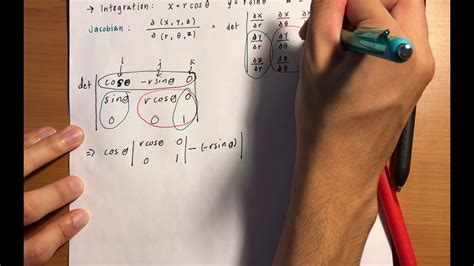 → Integration: x = r cosθ y = r sinθ
Jacobian: ∂(x, y, z) / ∂(r, θ, z) = det | ∂x/∂r ∂x/∂θ ∂x
∂y/∂r ∂y/∂θ
∂z/∂r ∂z/∂θ
i j k
det | cosθ -r sinθ 0
sinθ r cosθ 0
0 0 1 |
⇒ cosθ | r cosθ 0 | - (-r sinθ) |
0 1